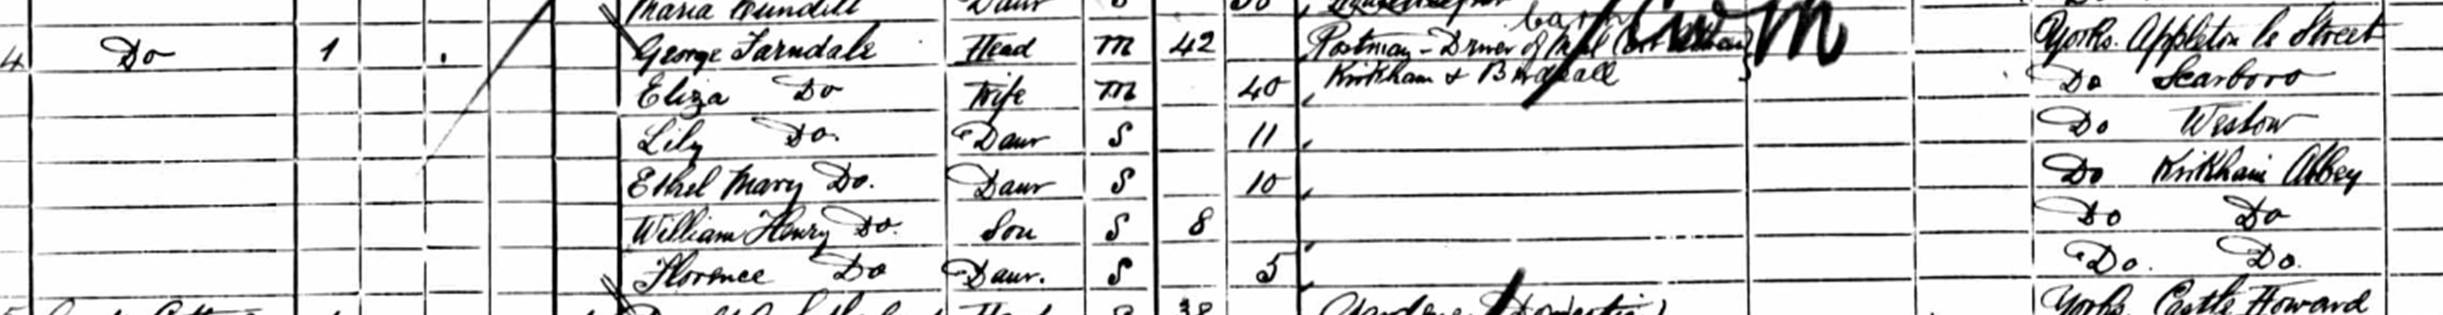 Maria
4 Do 1 George Farndale Head M 42 Postman - Driver of Mail Cart Yorks. Appleton le Street
Eliza Do Wife M 40 Kirkham & Birdsall Do Scarboro
Lily Do. Daur S 11 Do Westow
Ethel Mary Do. Daur S 10 Do Kirkham Abbey
William Henry Do. Son S 8 Do Do
Florence Do Daur. S 5 Do. Do.
Head S 38 Domestic Yorks. Castle Howard